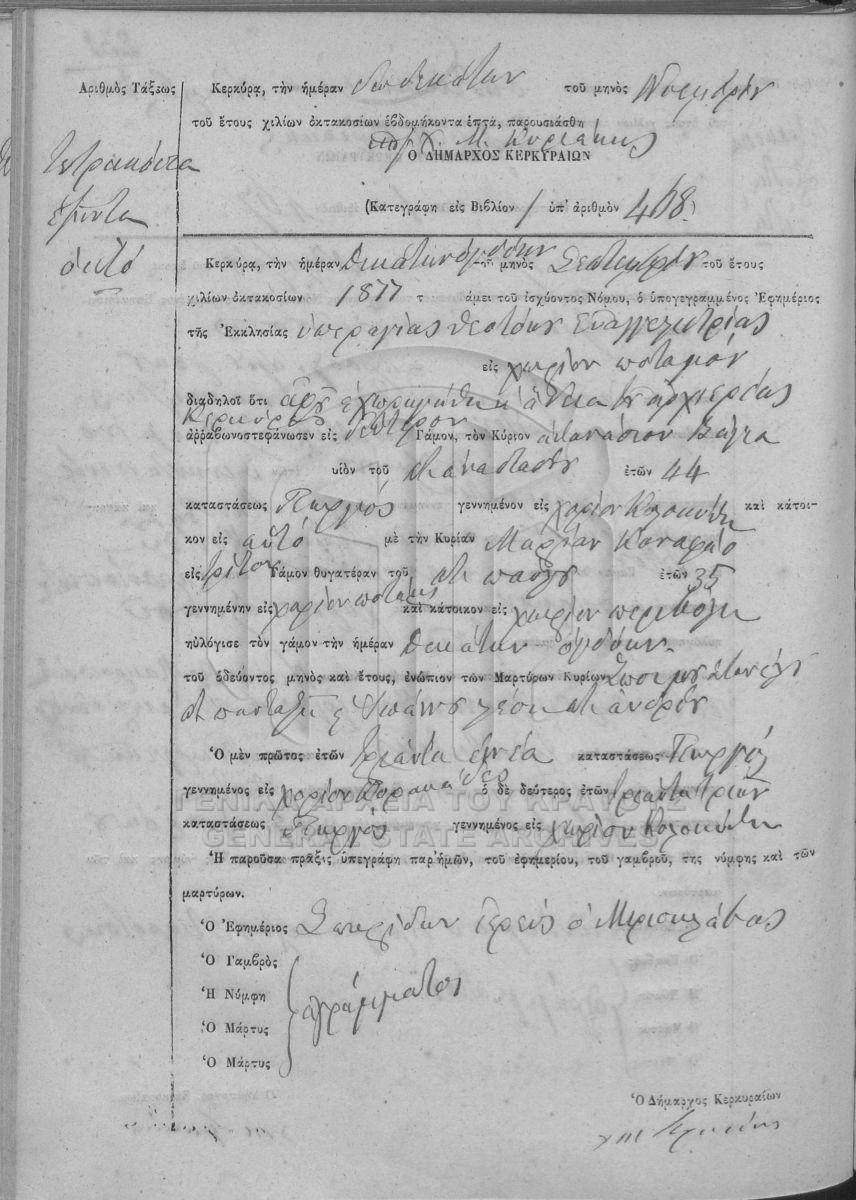 Ἀριθμὸς Τάξεως
Τετρακόσια
ἑξῆντα
ὀκτὼ
Κερκύρᾳ, τὴν ἡμέραν δωδεκάτην τοῦ μηνὸς Νοεμβρίου
τοῦ ἔτους χιλίων ὀκτακοσίων ἑβδομήκοντα ἑπτά, παρουσιάσθη
Μ. Κυριάκης
Ὁ ΔΗΜΑΡΧΟΣ ΚΕΡΚΥΡΑΙΩΝ
(Κατεγράφη εἰς Βιβλίον 1 ὑπ' ἀριθμὸν 468)
Κερκύρᾳ, τὴν ἡμέραν δεκάτην ὀγδόην τοῦ μηνὸς Σεπτεμβρίου τοῦ ἔτους
χιλίων ὀκτακοσίων 1877 τ άμει τοῦ ἰσχύοντος Νόμου, ὁ ὑπογεγραμμένος Ἐφημέριος
τῆς Ἐκκλησίας ὑπεραγίας Θεοτόκου Εὐαγγελιστρίας
εἰς χωρίον ποταμόν
διαδηλοῖ ὅτι ἀφοῦ ἐχωρηγήθη ἡ ἄδεια τῆς ἀρχιερέας
Κερκύρας
ἀρραβωνοστεφάνωσεν εἰς δεύτερον Γάμον, τὸν Κύριον ἀθανάσιον Βάγια
υἱὸν τοῦ ἀναστάση ἐτῶν 44
καταστάσεως Γεωργός γεννημένον εἰς χωρίον Κοκκίνη καὶ κάτοι-
κον εἰς αὐτό μὲ τὴν Κυρίαν Μαρίαν
εἰς τρίτον Γάμον θυγατέραν τοῦ ποτὲ παύλου ἐτῶν 35
γεννημένην εἰς χωρίον ποταμός καὶ κάτοικον εἰς χωρίον περιβόλι
ηὐλόγισε τὸν γάμον τὴν ἡμέραν δεκάτην ὀγδόην
τοῦ ὁδεύοντος μηνὸς καὶ ἔτους, ἐνώπιον τῶν Μαρτύρων Κυρίων
ποτὲ ἀνδρέου
Ὁ μὲν πρῶτος ἐτῶν τριάντα ἐννέα καταστάσεως Γεωργός
γεννημένος εἰς χωρίον ὁ δὲ δεύτερος ἐτῶν τριάντα τριῶν
καταστάσεως Γεωργός γεννημένος εἰς χωρίον Κοκκίνη
Ἡ παροῦσα πρᾶξις ὑπεγράφη παρ' ἡμῶν, τοῦ ἐφημερίου, τοῦ γαμβροῦ, της νύμφης καὶ τῶν
μαρτύρων.
Ὁ Ἐφημέριος Σπυρίδων Ἱερεὺς ὁ
Ὁ Γαμβρὸς
Ἡ Νύμφη
ἀγράμματοι
Ὁ Μάρτυς
Ὁ Μάρτυς
Ὁ Δήμαρχος Κερκυραίων
ΓΕΝΙΚΑ ΑΡΧΕΙΑ ΤΟΥ ΚΡΑΤΟΥΣ
GENERAL STATE ARCHIVES